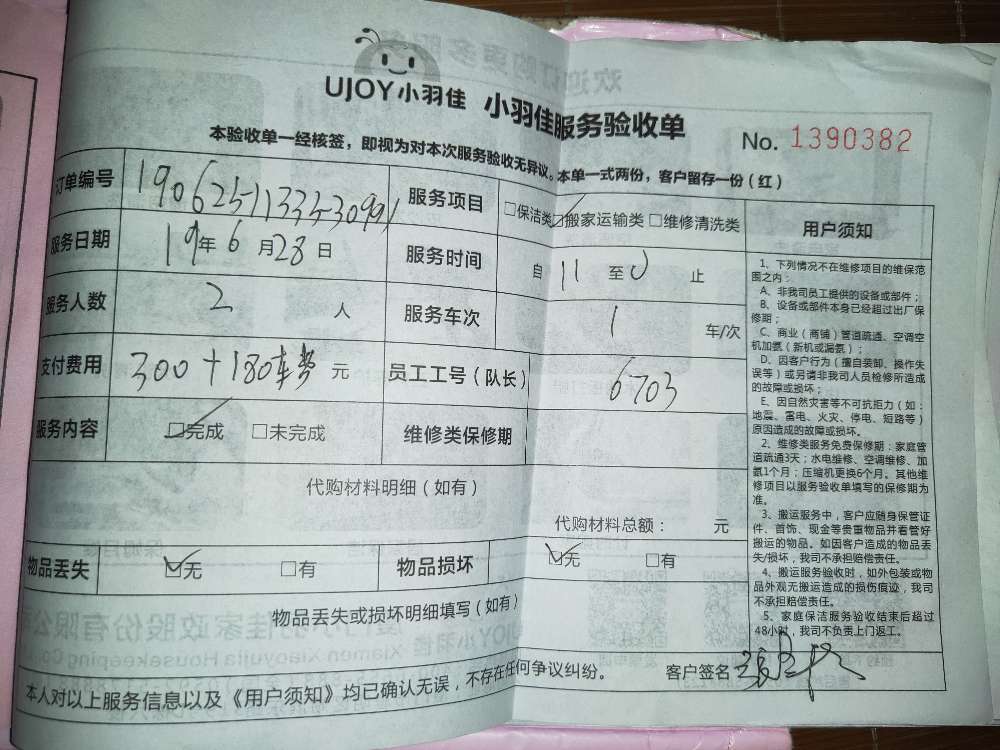 UJOY小羽佳 小羽佳服务验收单
No. 1390382
本验收单一经核签，即视为对本次服务验收无异议。本单一式两份，客户留存一份（红）
订单编号 服务项目 □保洁类 ☑搬家运输类 □维修清洗类 用户须知
服务日期 19年6月28日 服务时间 自 11 至 止
服务人数 2 人 服务车次 1 车/次
支付费用 300+180车费 元 员工工号（队长） 6703
服务内容 ☑完成 □未完成 维修类保修期
代购材料明细（如有）
代购材料总额： 元
物品丢失 ☑无 □有 物品损坏 ☑无 □有
物品丢失或损坏明细填写（如有）
本人对以上服务信息以及《用户须知》均已确认无误，不存在任何争议纠纷。 客户签名
1、下列情况不在维修项目的维保范
围之内：
A、非我司员工提供的设备或部件；
B、设备或部件本身已经超过出厂保
修期；
C、商业（商铺）管道疏通、空调空
机加氨（新机或漏氨）；
D、因客户行为（擅自装卸、操作失
误等）或另请非我司人员检修所造成
的故障或损坏；
E、因自然灾害等不可抗拒力（如：
地震、雷电、火灾、停电、短路等）
原因造成的故障或损坏。
2、维修类服务免费保修期：家庭管
道疏通3天；水电维修、空调维修、加
氨1个月；压缩机更换6个月。其他维
修项目以服务验收单填写的保修期为
准。
3、搬运服务中，客户应随身保管证
件、首饰、现金等贵重物品并看管好
搬运的物品。如因客户造成的物品丢
失/损坏，我司不承担赔偿责任。
4、搬运服务验收时，如外包装或物
品外观无搬运造成的损伤痕迹，我司
不承担赔偿责任。
5、家庭保洁服务验收结束后超过
48小时，我司不负责上门返工。